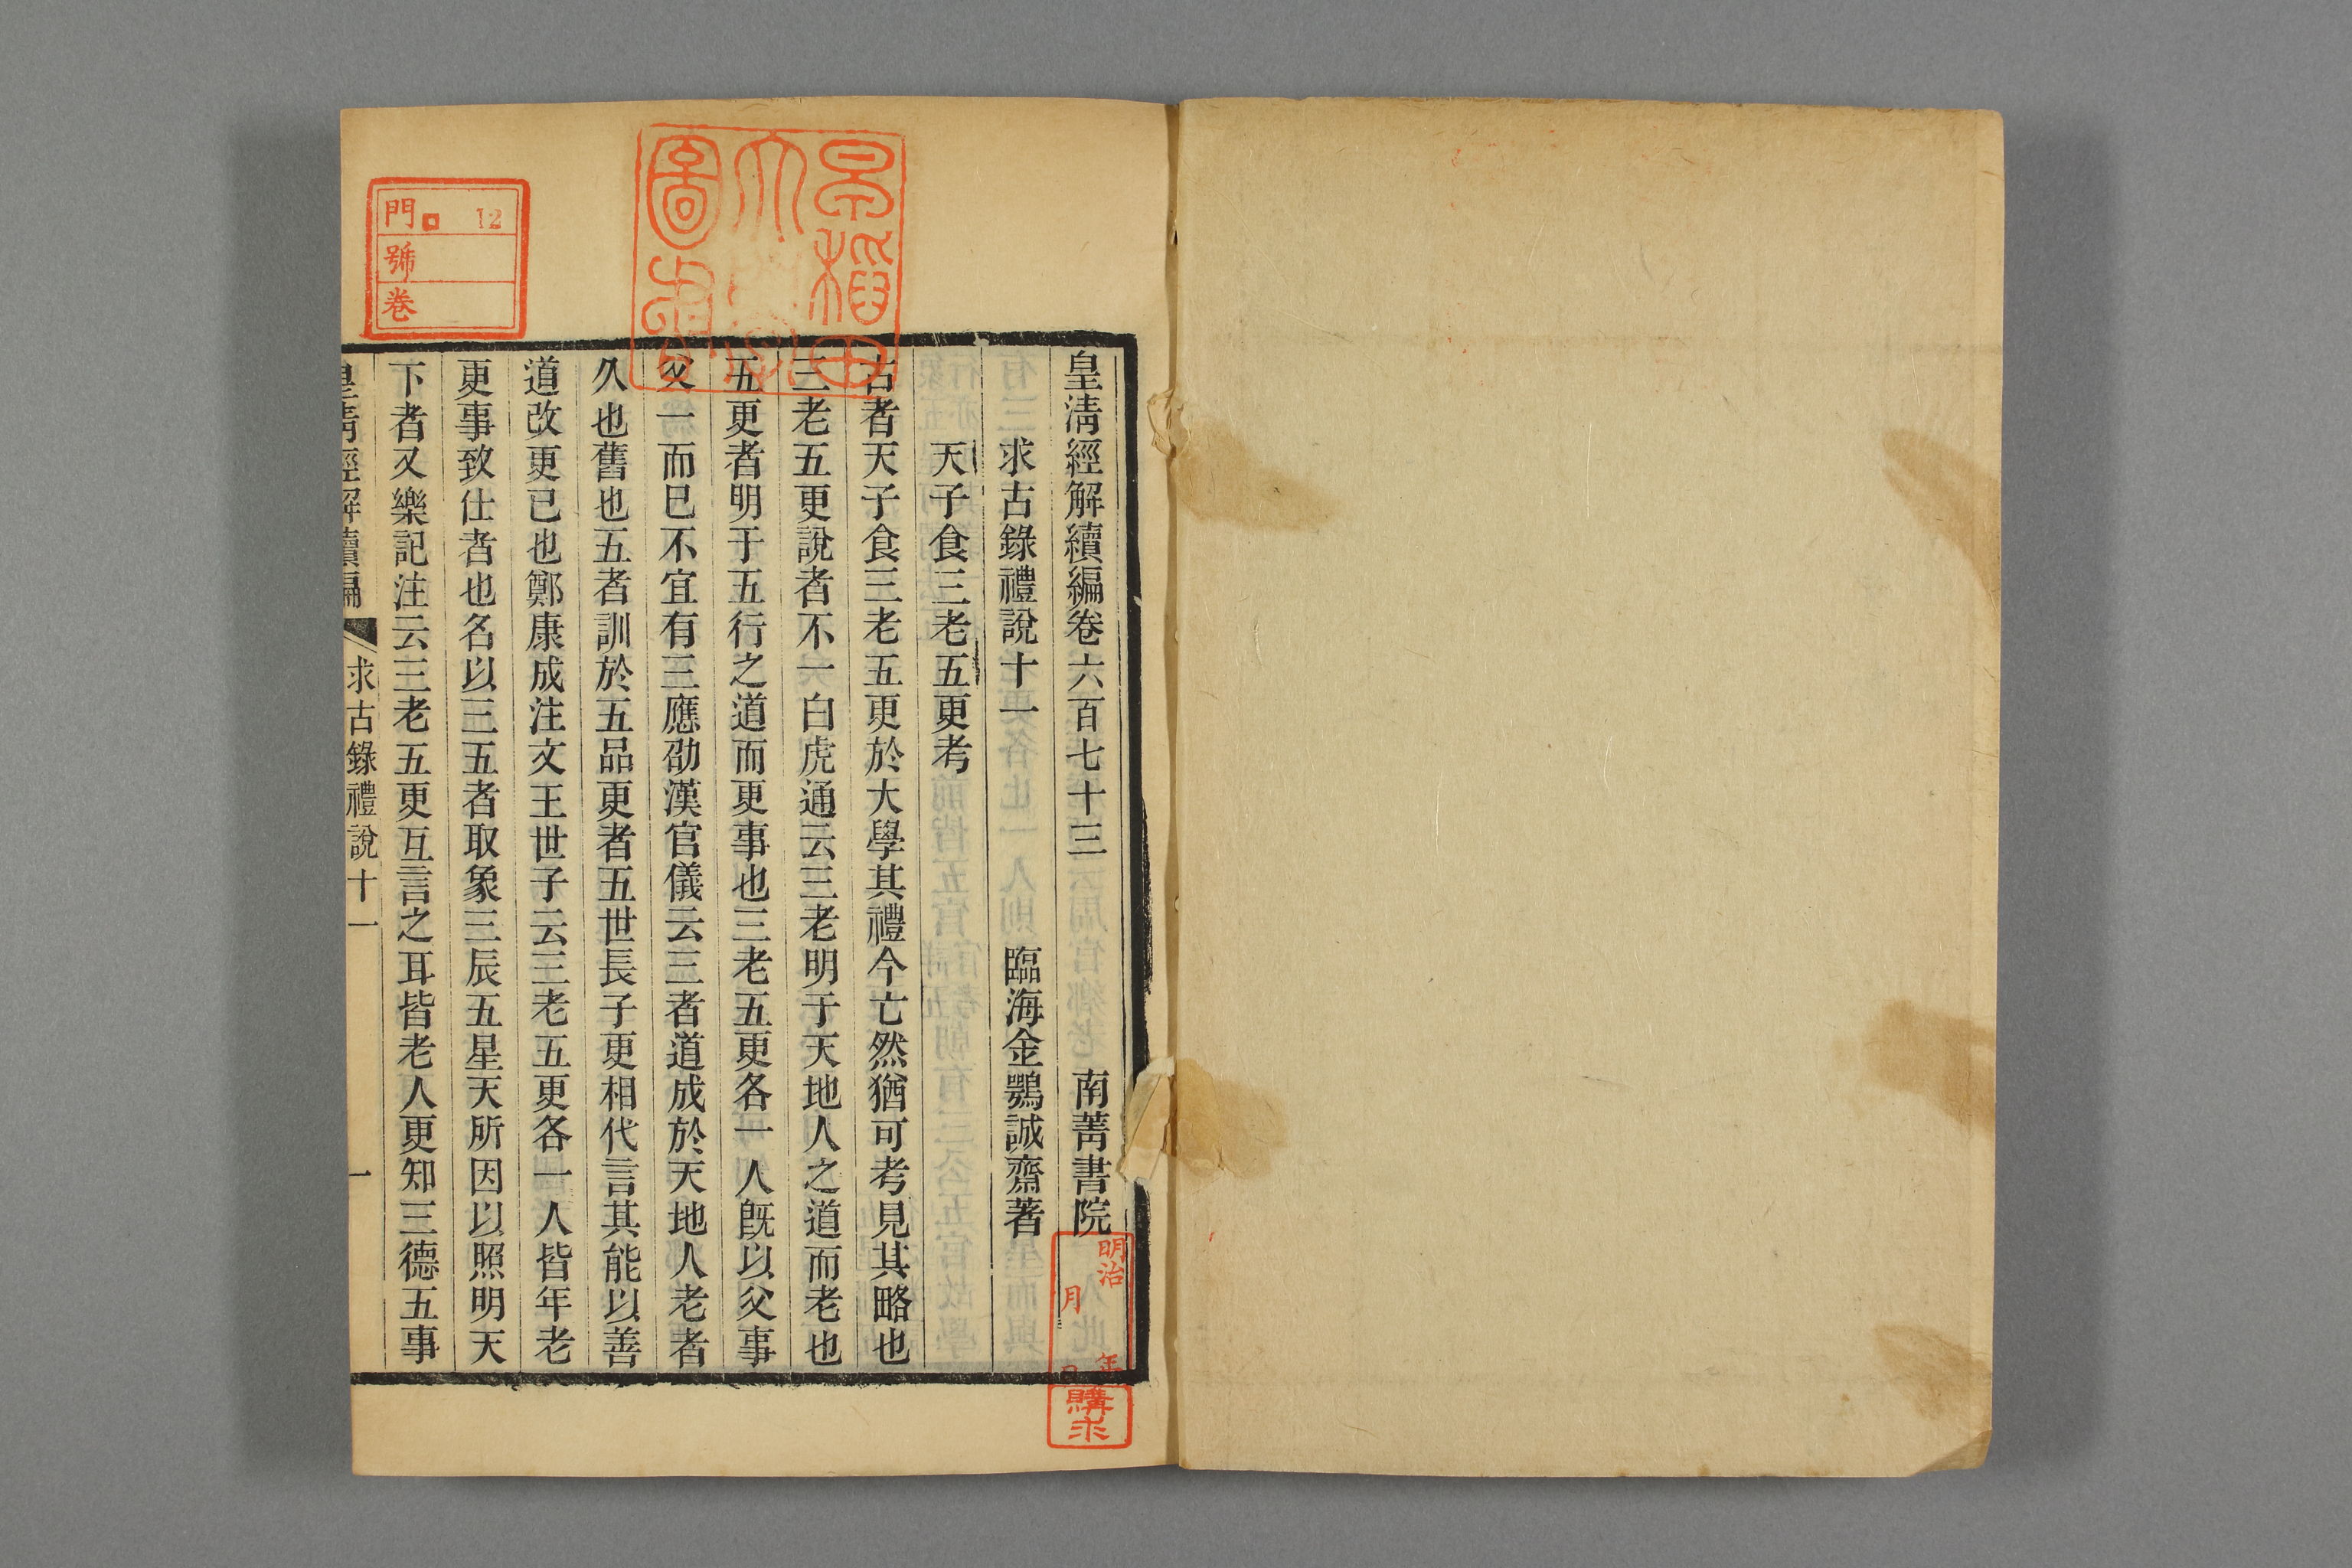 皇淸經解續編卷六百七十三
南菁書院
求古錄禮說十一
臨海金鶚誠齋著
天子食三老五更考
古者天子食三老五更於大學其禮今亡然猶可考見其略也
三老五更說者不一白虎通云三老明于天地人之道而老也
五更者明于五行之道而更事也三老五更各一人旣以父事
父一而已不宜有三應劭漢官儀云三者道成於天地人老者
久也舊也五者訓於五品更者五世長子更相代言其能以善
道改更已也鄭康成注文王世子云三老五更各一人皆年老
更事致仕者也名以三五者取象三辰五星天所因以照明天
下者又樂記注云三老五更互言之耳皆老人更知三德五事
皇淸經解續編
求古錄禮說十一
一
早稻田大學圖書
門 12
號
卷
明治 年
月 日
購求